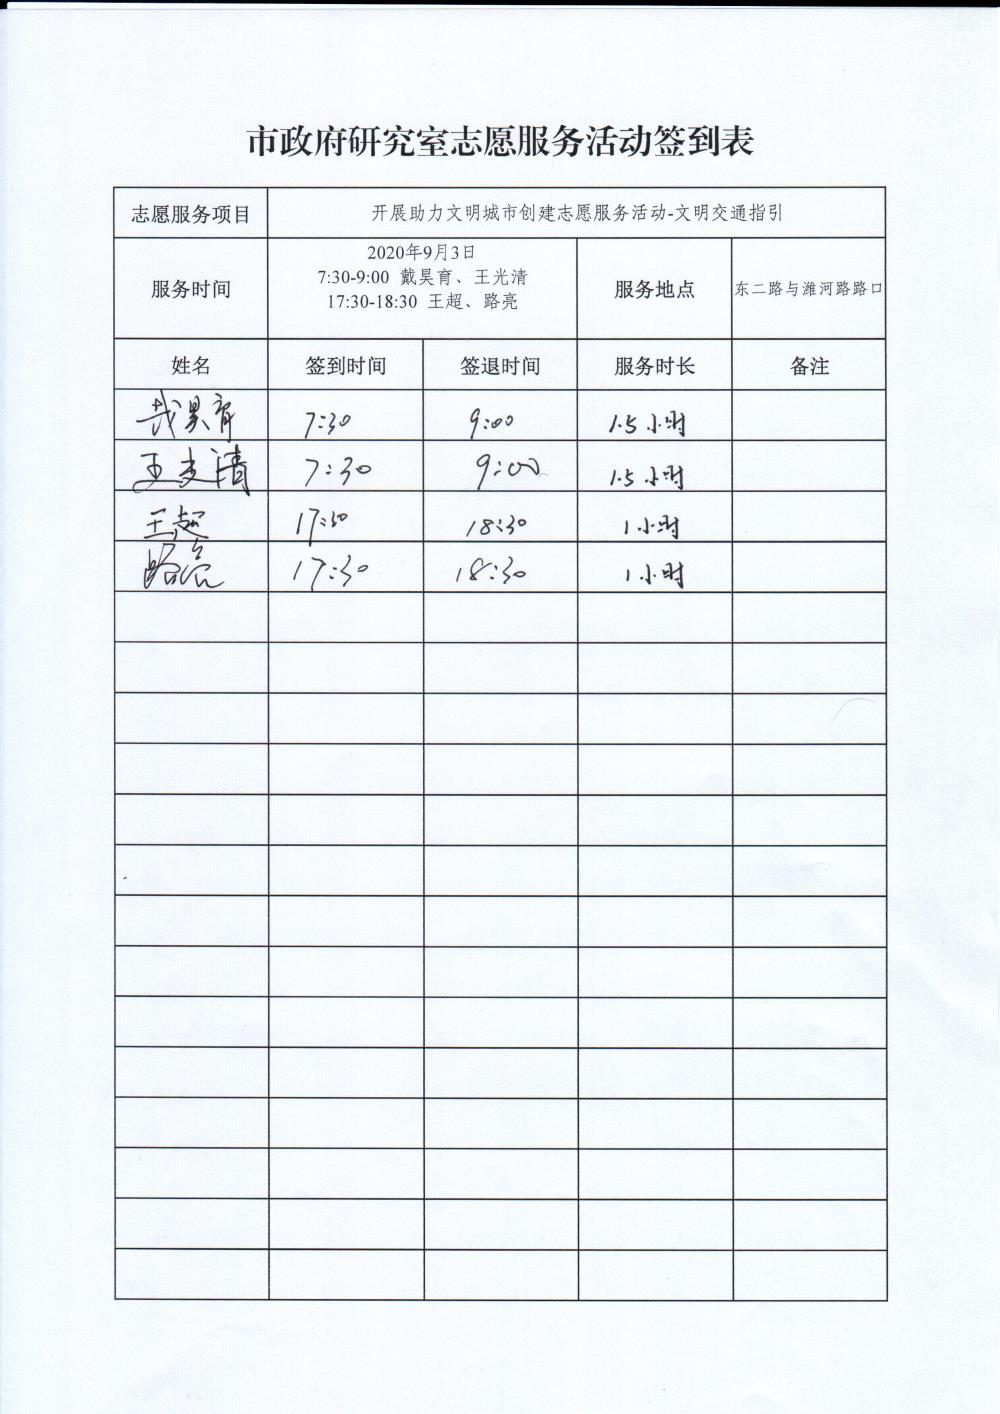 市政府研究室志愿服务活动签到表
志愿服务项目 开展助力文明城市创建志愿服务活动-文明交通指引
服务时间 2020年9月3日
7:30-9:00 戴昊育、王光清
17:30-18:30 王超、路亮
服务地点 东二路与潍河路路口
姓名 签到时间 签退时间 服务时长 备注
戴昊育 7:30 9:00 1.5小时
王光清 7:30 9:00 1.5小时
王超 17:30 18:30 1小时
路亮 17:30 18:30 1小时